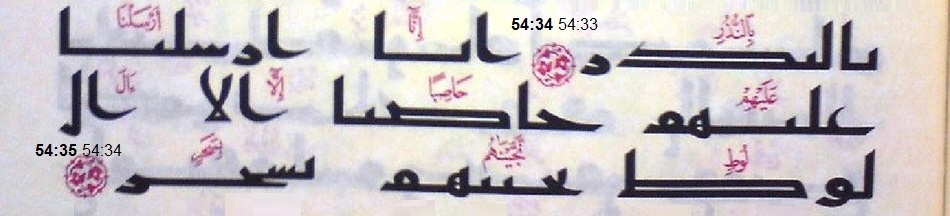 بِالنُّذُرِ إِنَّا أَرْسَلْنَا
بالنذر 54:34 54:33 انا ارسلنا
عَلَيْهِمْ حَاصِبًا إِلَّا آلَ
عليهم حاصبا الا ال
لُوطٍ نَّجَّيْنَٰهُم بِسَحَرٍ
لوط نجينهم بسحر 54:35 54:34